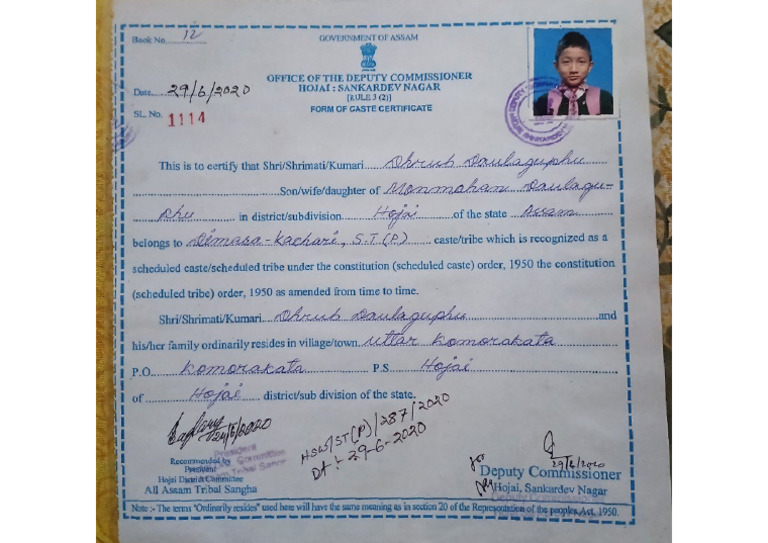 Book No. 12
GOVERNMENT OF ASSAM
OFFICE OF THE DEPUTY COMMISSIONER
HOJAI : SANKARDEV NAGAR
[RULE 3 (2)]
FORM OF CASTE CERTIFICATE
Date 29/6/2020
SL. No. 1114
This is to certify that Shri/Shrimati/Kumari Dhrub Daulaguphu
Son/wife/daughter of Monmohan Daulagu-
phu in district/subdivision Hojai of the state Assam
belongs to Dimasa-Kachari, S.T(P) caste/tribe which is recognized as a
scheduled caste/scheduled tribe under the constitution (scheduled caste) order, 1950 the constitution
(scheduled tribe) order, 1950 as amended from time to time.
Shri/Shrimati/Kumari Dhrub Daulaguphu and
his/her family ordinarily resides in village/town Uttar Komorakata
P.O. Komorakata P.S. Hojai
of Hojai district/sub division of the state.
HSW/ST(P)/287/2020
Dt :- 29-6-2020
Recommended by
President
Hojai District Committee
All Assam Tribal Sangha
29/6/2020
for
Deputy Commissioner
Hojai, Sankardev Nagar
Deputy Commissioner
Note :- The terms "Ordinarily resides" used here will have the same meaning as in section 20 of the Representation of the peoples Act, 1950.